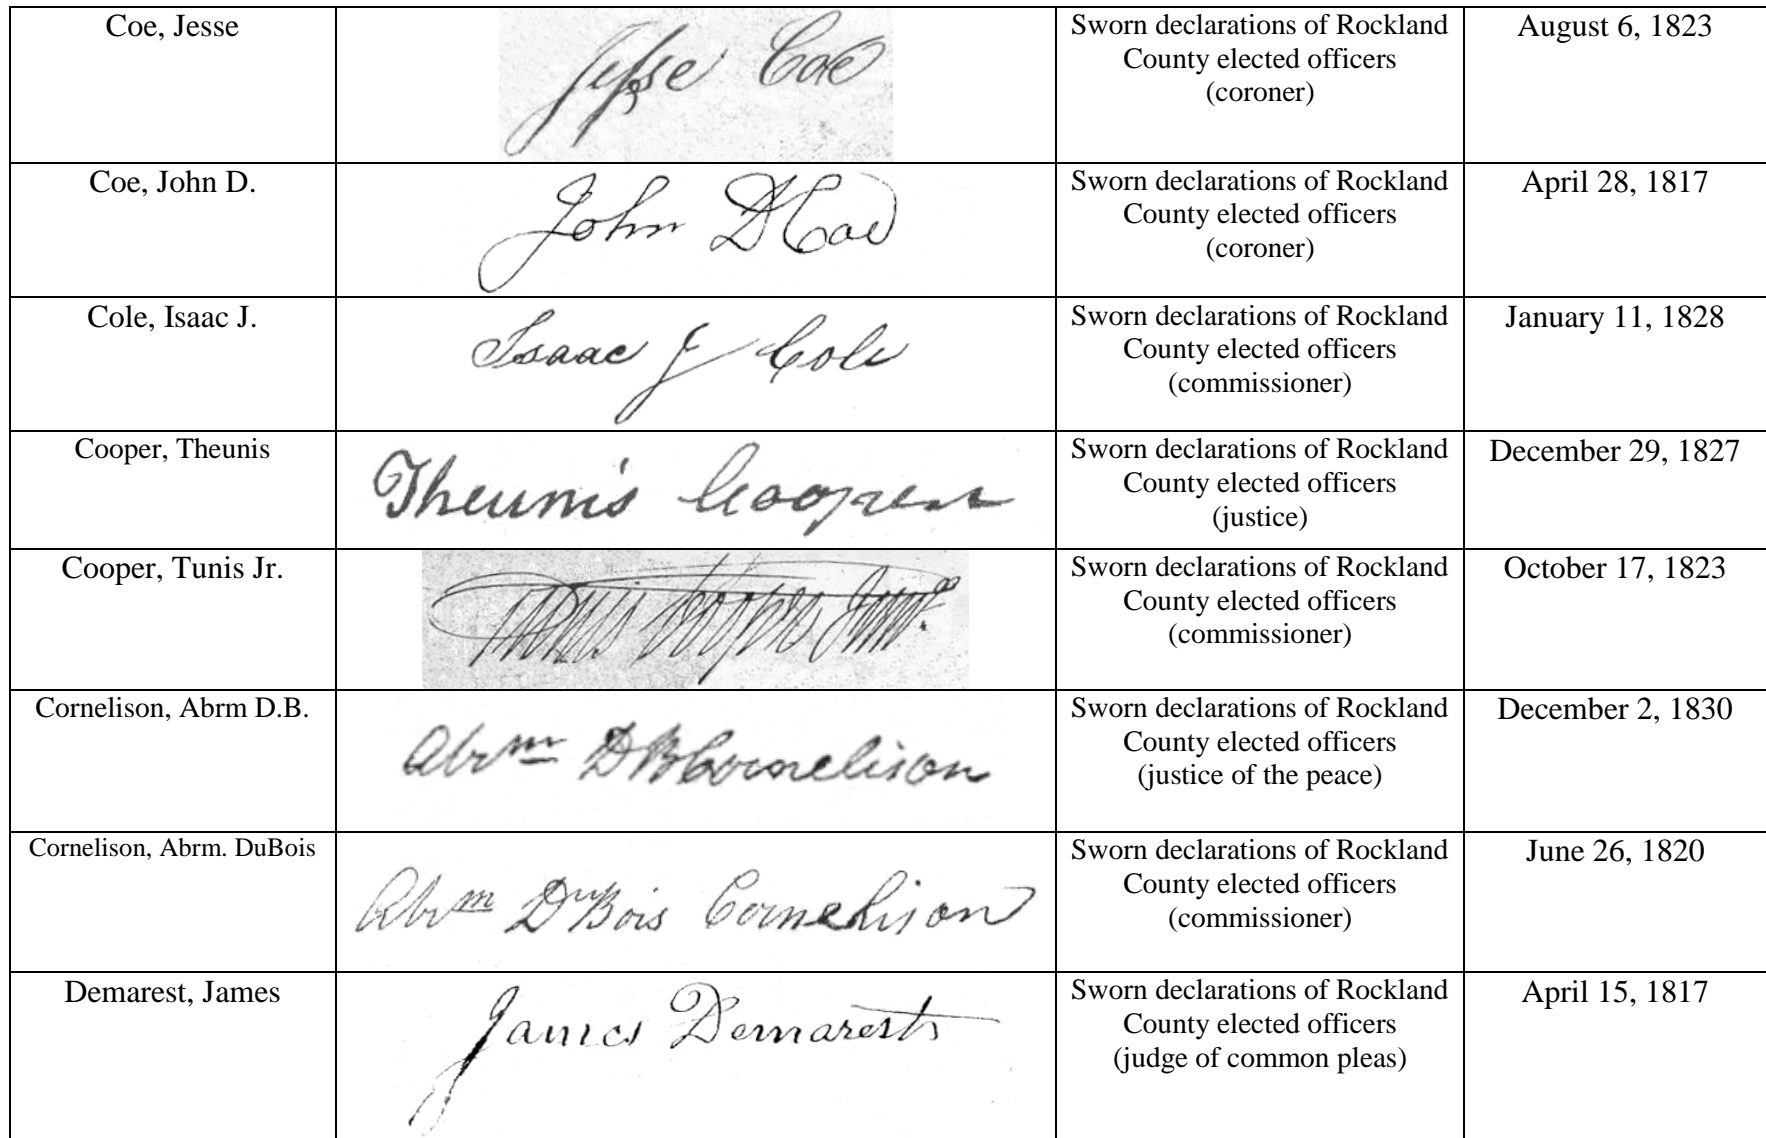 Coe, Jesse
Jesse Coe
Sworn declarations of Rockland
County elected officers
(coroner)
August 6, 1823
Coe, John D.
John D Coe
Sworn declarations of Rockland
County elected officers
(coroner)
April 28, 1817
Cole, Isaac J.
Isaac J Cole
Sworn declarations of Rockland
County elected officers
(commissioner)
January 11, 1828
Cooper, Theunis
Theunis Cooper
Sworn declarations of Rockland
County elected officers
(justice)
December 29, 1827
Cooper, Tunis Jr.
Tunis Cooper Junr.
Sworn declarations of Rockland
County elected officers
(commissioner)
October 17, 1823
Cornelison, Abrm D.B.
Abrm D B Cornelison
Sworn declarations of Rockland
County elected officers
(justice of the peace)
December 2, 1830
Cornelison, Abrm. DuBois
Abrm DuBois Cornelison
Sworn declarations of Rockland
County elected officers
(commissioner)
June 26, 1820
Demarest, James
James Demarest
Sworn declarations of Rockland
County elected officers
(judge of common pleas)
April 15, 1817